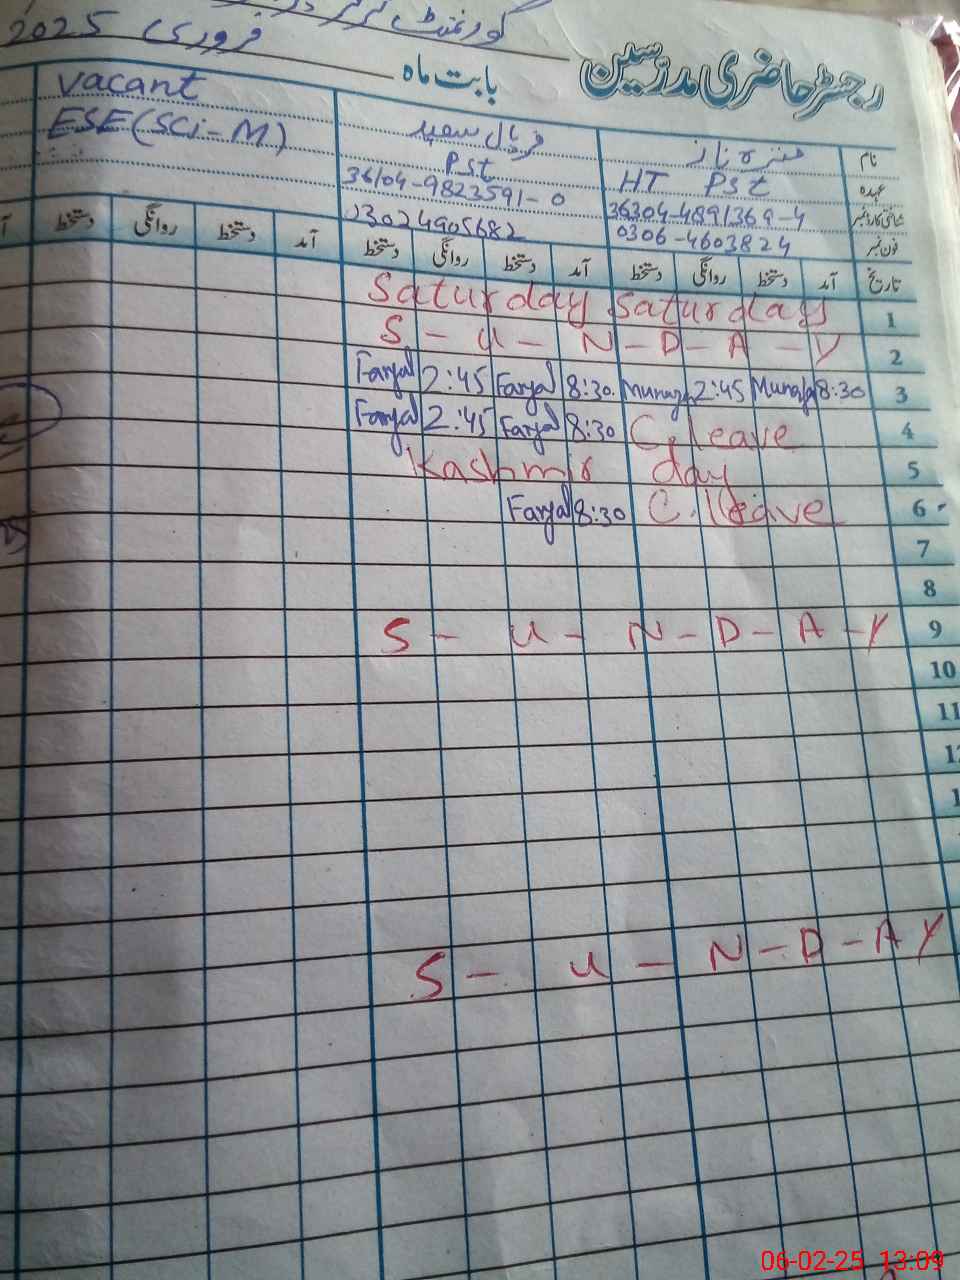 گورنمنٹ گرلز
رجسٹر حاضری مدرسین بابت ماہ فروری 2025
نام منزہ ناز فریال سعید vacant
عہدہ HT Pst Pst ESE (SCi-M)
شناختی کارڈ نمبر 36304-4891369-4 36104-9823591-0
فون نمبر 0306-4603824 03024905682
تاریخ آمد دستخط روانگی دستخط آمد دستخط روانگی دستخط آمد دستخط روانگی دستخط
1 Saturday Saturday
2 S-U-N-D-A-Y
3 Faryal 2:45 Faryal 8:30 Munaza 2:45 Munaza 8:30
4 Faryal 2:45 Faryal 8:30 C.leave
5 Kashmir day
6 Faryal 8:30 C.leave
7
8
9 S-U-N-D-A-Y
10
11
S-U-N-D-AY
06-02-25 13:09